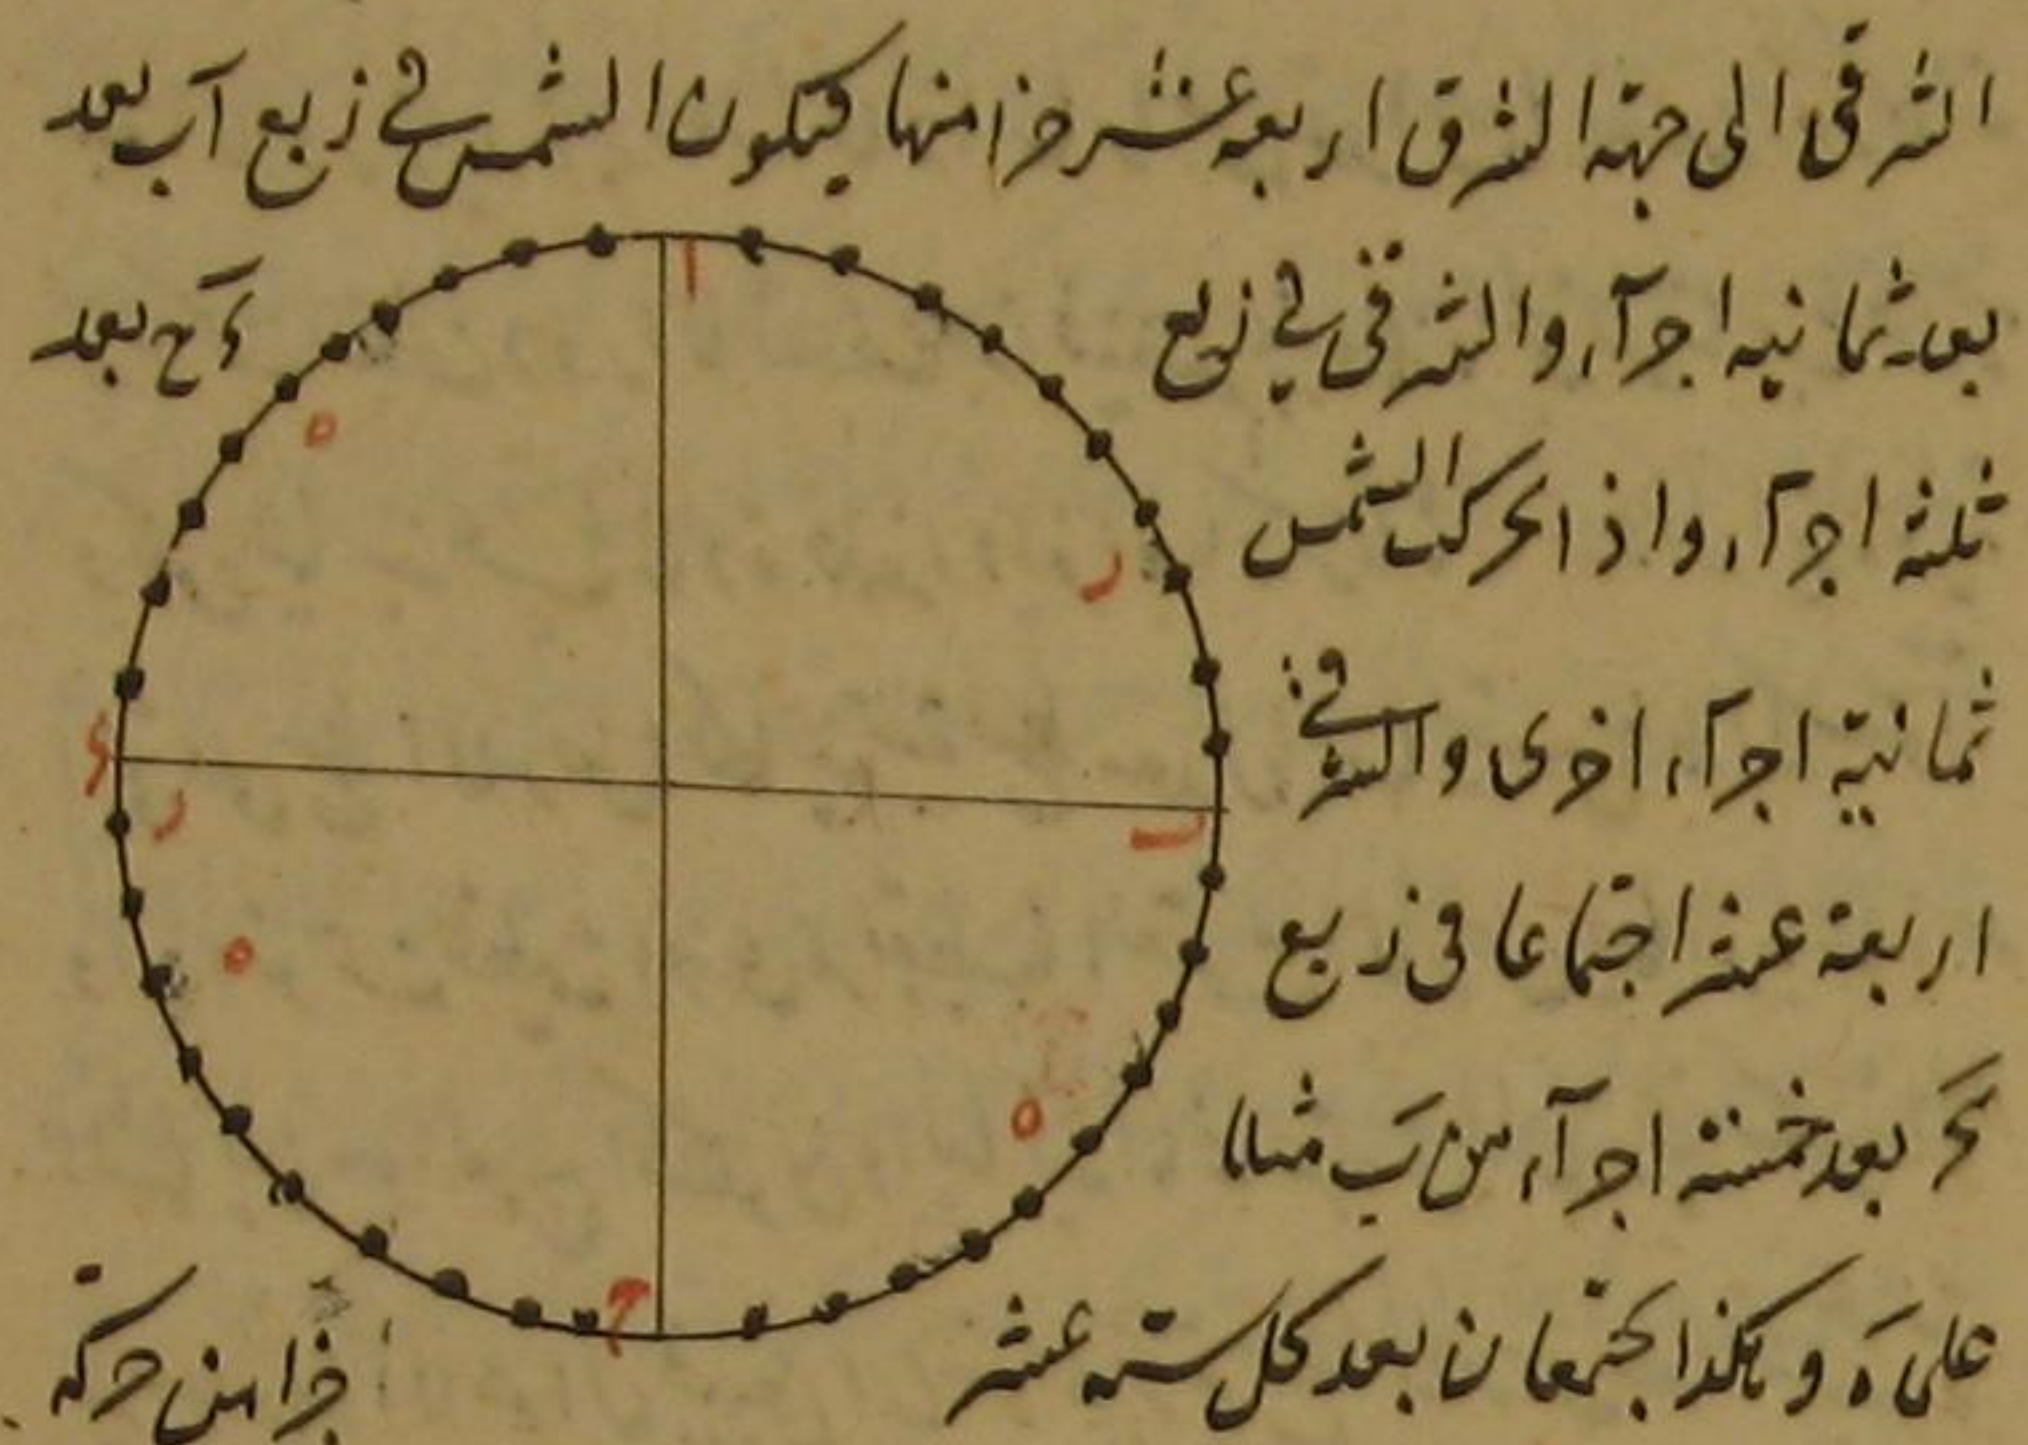 الشرقى الى جهة الشرق اربعة عشر جزا منها فيكون الشمس فى ربع آب بعد
بعد ثمانية اجزآء والشرقى فى ربع ءَح بعد
ثلثة اجزآء واذا تحركت الشمس
ثمانية اجزآء اخرى والشرقى
اربعة عشر اجتماعا فى ربع
بعد خمسة اجزآء من بَ مثلا
على هَ وهكذا يجتمعان بعد كل ستة عشر جزا من حركة
ا
ه
ر
ء
ر
ب
ه
ه
ح